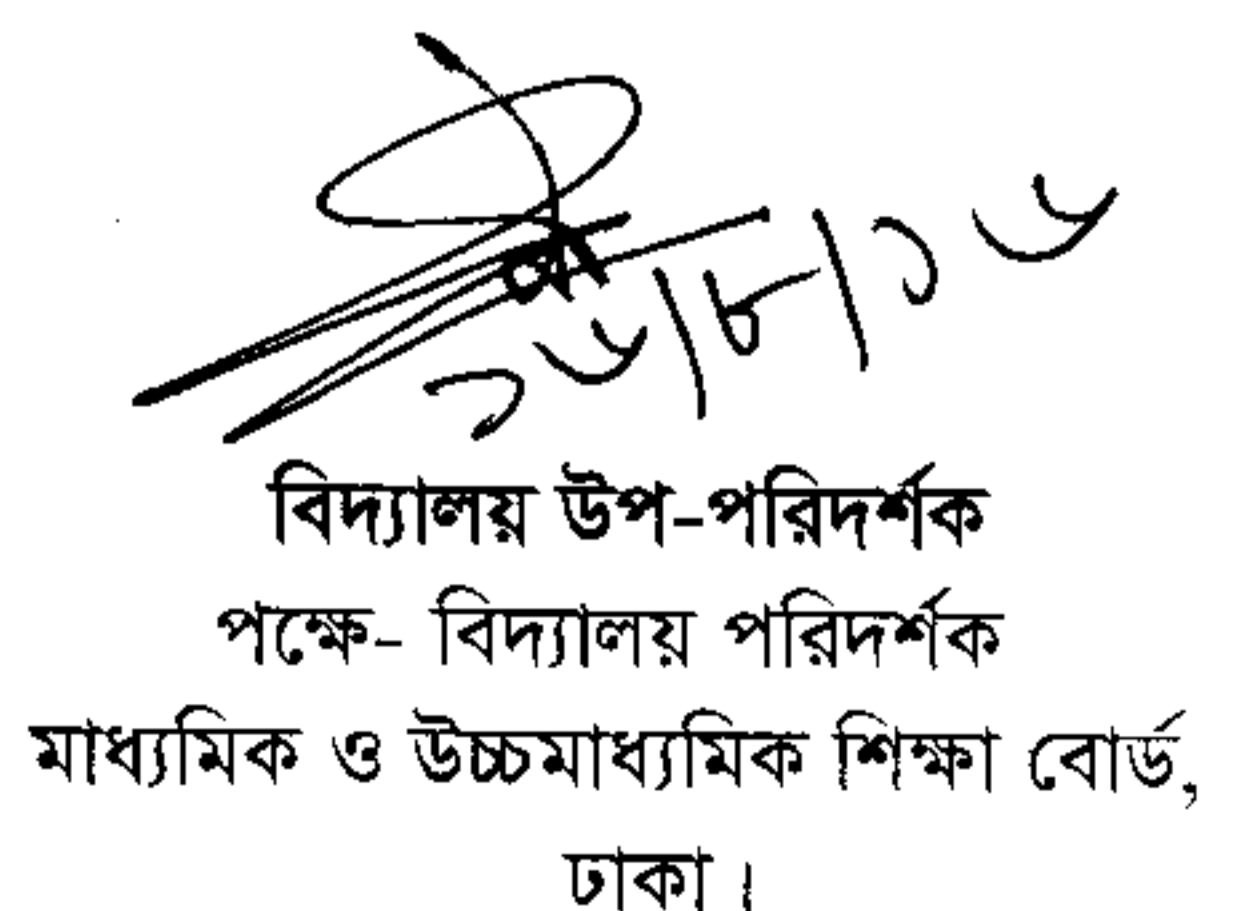 ১৬/৮/১৬
বিদ্যালয় উপ-পরিদর্শক
পক্ষে- বিদ্যালয় পরিদর্শক
মাধ্যমিক ও উচ্চমাধ্যমিক শিক্ষা বোর্ড,
ঢাকা।